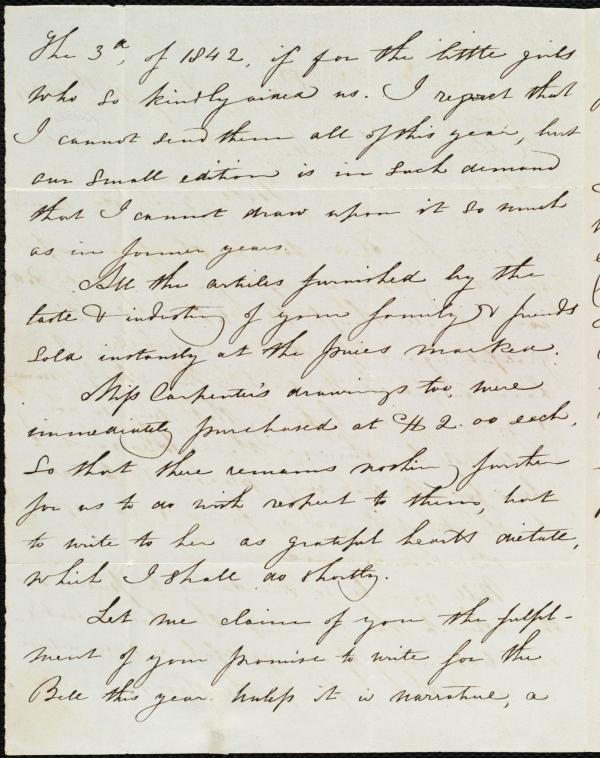 The 3d, of 1842, if for the little girls
who so kindly aided us. I regret that
I cannot send them all of this year, but
our small edition is in such demand
that I cannot draw upon it so much
as in former years.
All the articles furnished by the
taste & industry of your family & friends
sold instantly at the prices marked.
Miss Carpenter's drawings too, were
immediately purchased at $2.00 each,
so that there remains nothing further
for us to do with respect to them, but
to write to her as grateful hearts dictate,
which I shall do shortly.
Let me claim of you the fulfil-
ment of your promise to write for the
Bell this year. Unless it is narrative, a